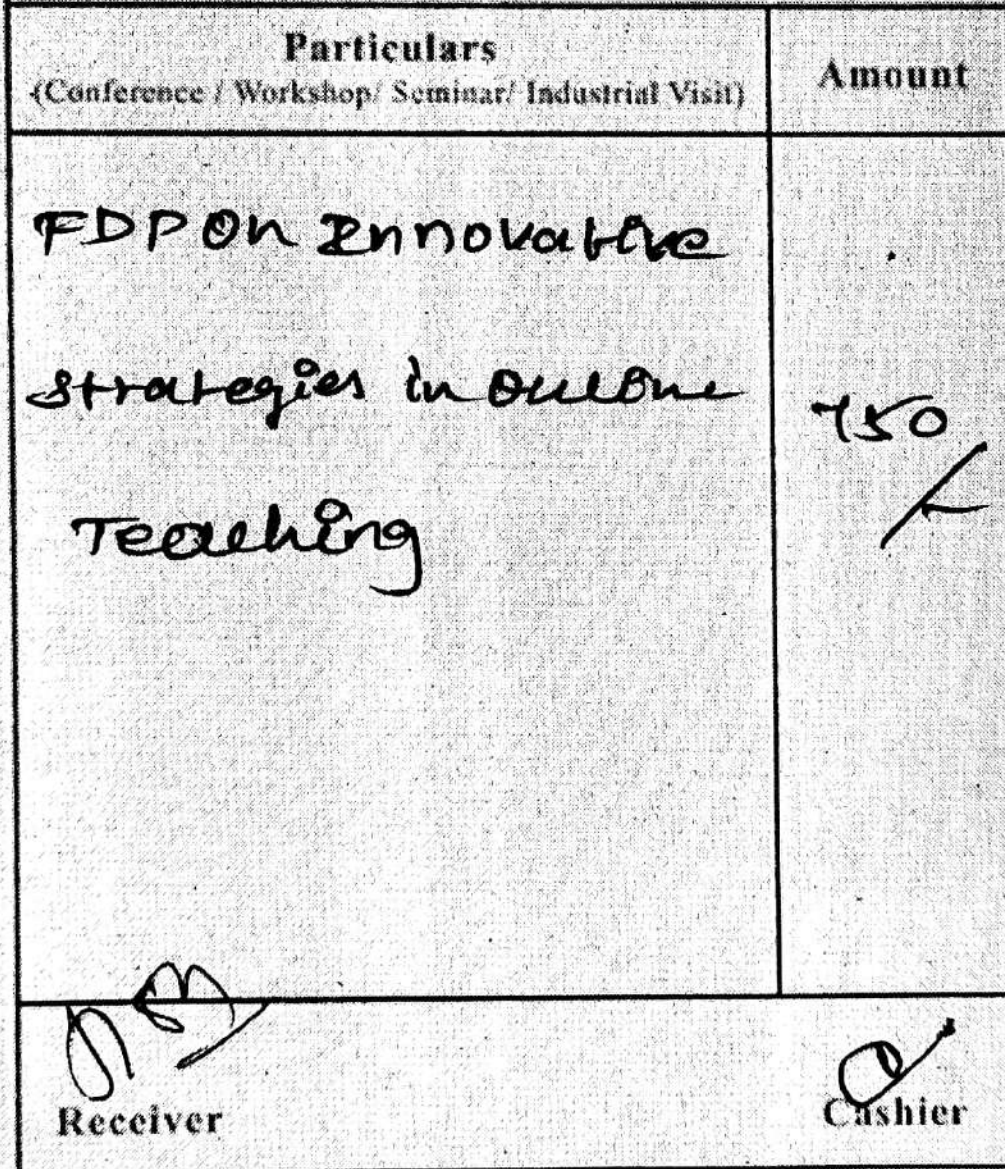 Particulars
Amount
(Conference / Workshop/ Seminar/ Industrial Visit)
FDP On Innovative
Strategies in
Teaching
750
/-
Receiver
Cashier